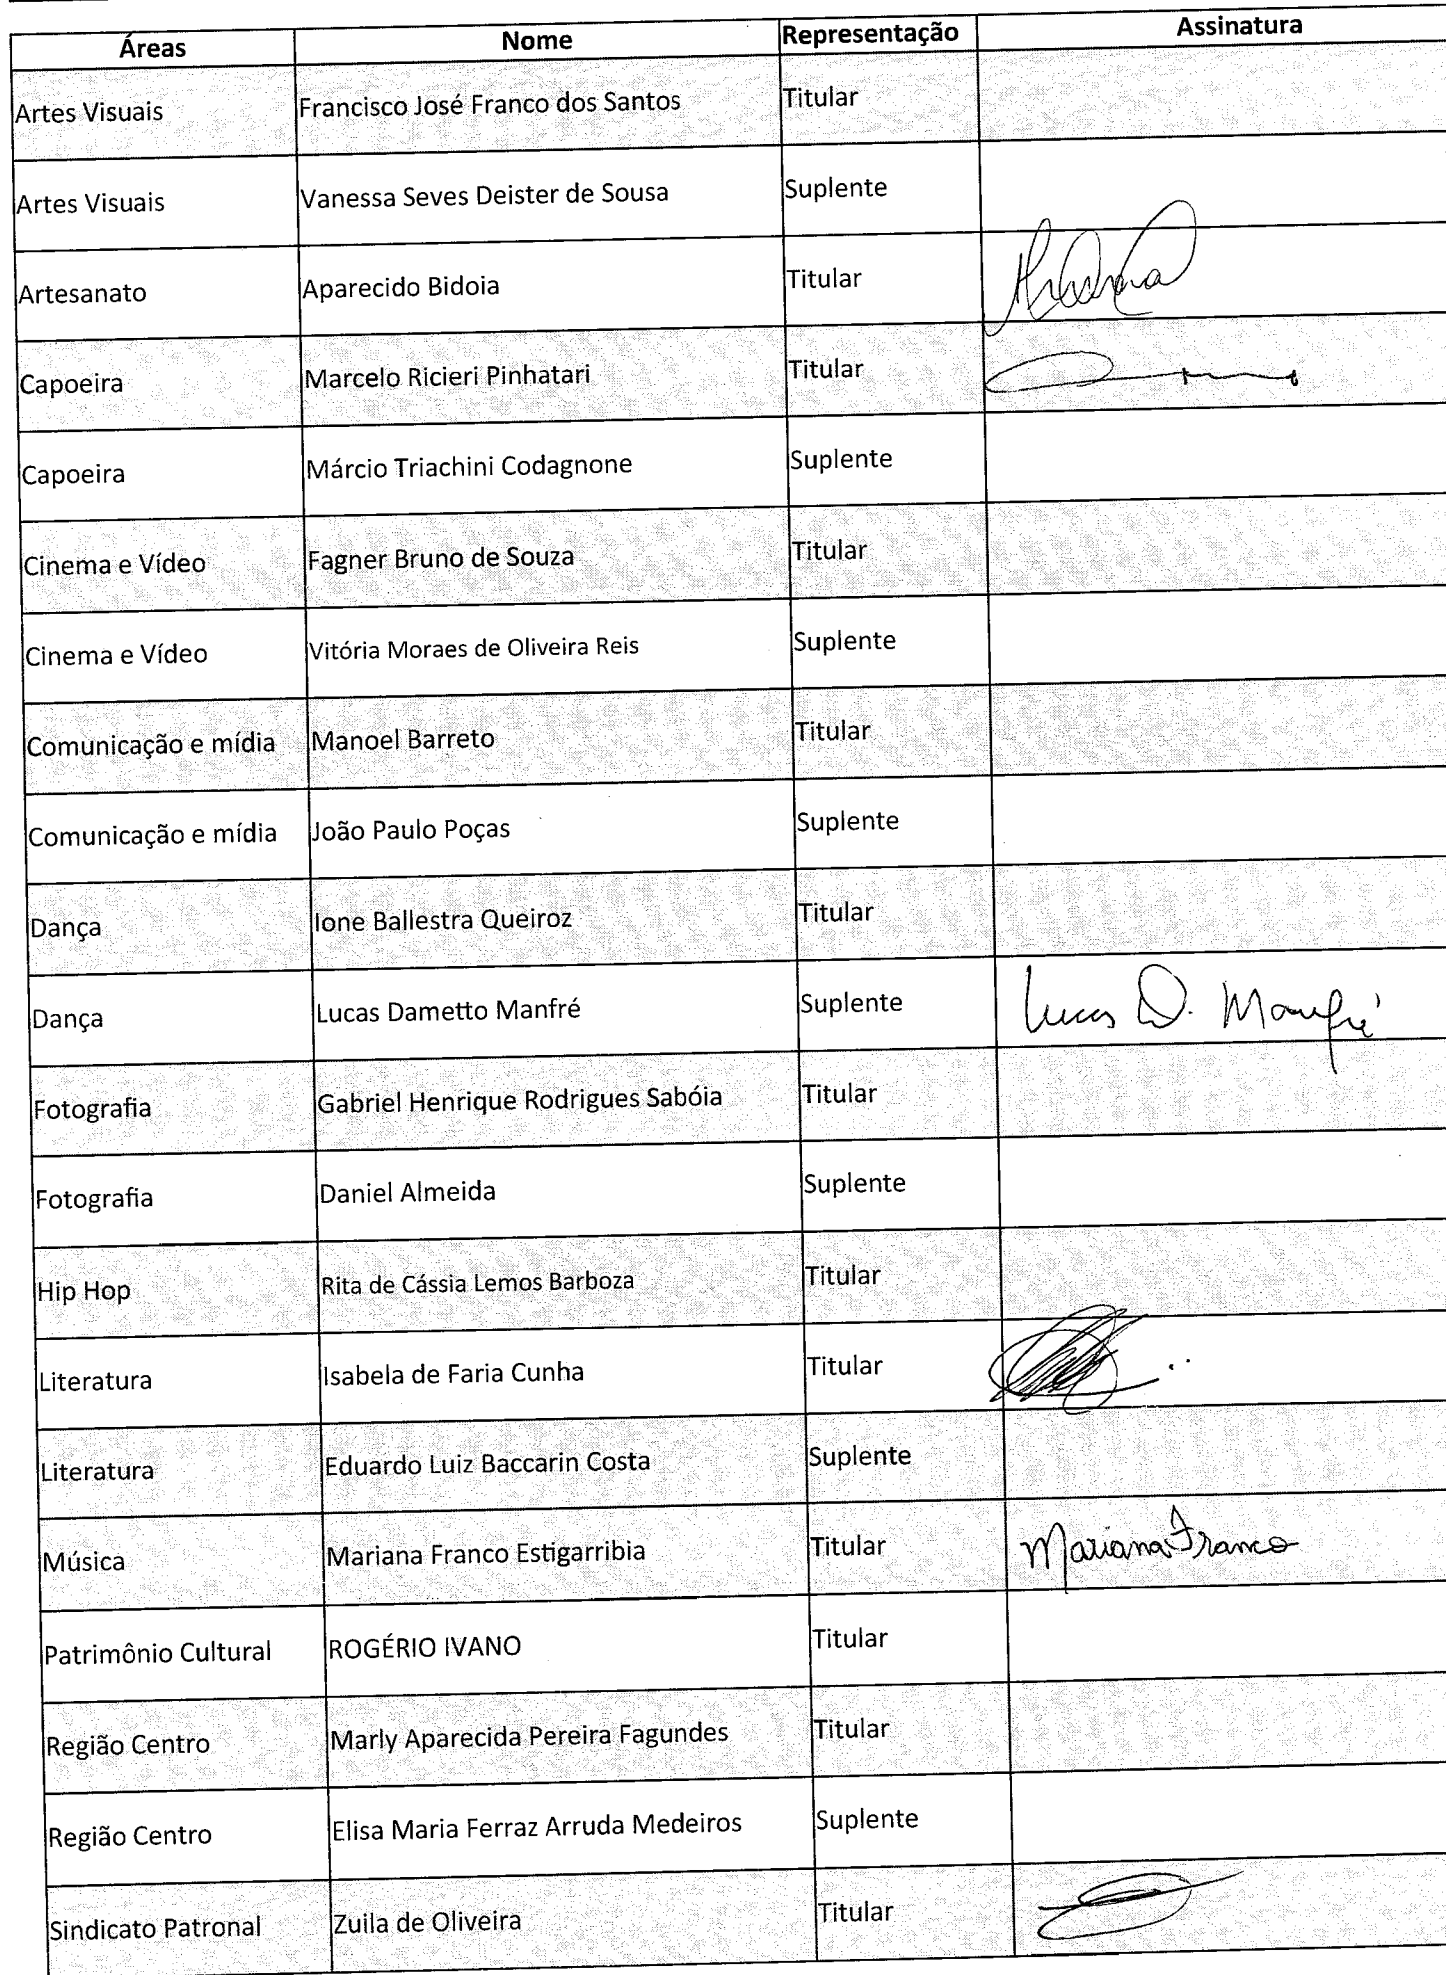 Áreas Nome Representação Assinatura
Artes Visuais Francisco José Franco dos Santos Titular
Artes Visuais Vanessa Seves Deister de Sousa Suplente
Artesanato Aparecido Bidoia Titular
Capoeira Marcelo Ricieri Pinhatari Titular
Capoeira Márcio Triachini Codagnone Suplente
Cinema e Vídeo Fagner Bruno de Souza Titular
Cinema e Vídeo Vitória Moraes de Oliveira Reis Suplente
Comunicação e mídia Manoel Barreto Titular
Comunicação e mídia João Paulo Poças Suplente
Dança Ione Ballestra Queiroz Titular
Dança Lucas Dametto Manfré Suplente Lucas D. Manfré
Fotografia Gabriel Henrique Rodrigues Sabóia Titular
Fotografia Daniel Almeida Suplente
Hip Hop Rita de Cássia Lemos Barboza Titular
Literatura Isabela de Faria Cunha Titular
Literatura Eduardo Luiz Baccarin Costa Suplente
Música Mariana Franco Estigarribia Titular Mariana Franco
Patrimônio Cultural ROGÉRIO IVANO Titular
Região Centro Marly Aparecida Pereira Fagundes Titular
Região Centro Elisa Maria Ferraz Arruda Medeiros Suplente
Sindicato Patronal Zuila de Oliveira Titular